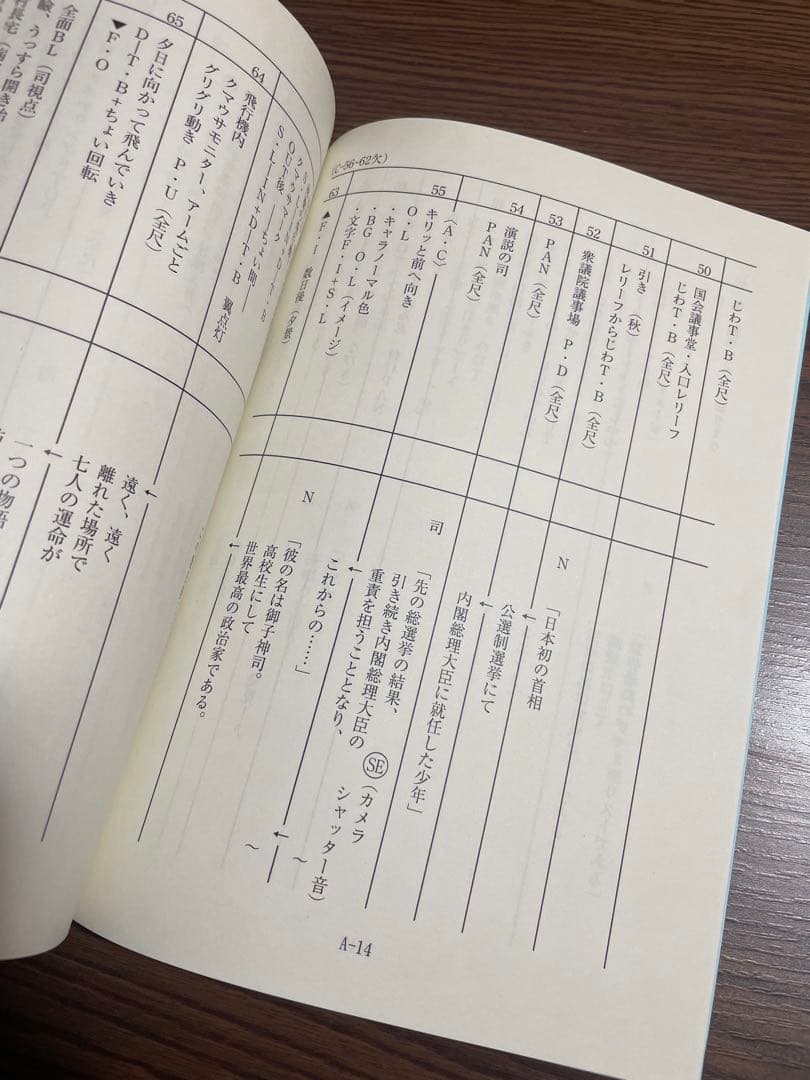 じわT・B（全尺）
50
国会議事堂・入口レリーフ
じわT・B（全尺）
51
引き（秋）
レリーフからじわT・B（全尺）
52
衆議院議事場 P・D（全尺）
53
PAN（全尺）
54
演説の司
PAN（全尺）
55
（A・C）
キリッと前へ向き
O・L
・キャラノーマル色
・BG O・L（イメージ）
・文字F・I＋S・L
（C-56-62欠）
63
▲F・I 数日後（夕景）
N
「日本初の首相
公選制選挙にて
内閣総理大臣に就任した少年」
司
「先の総選挙の結果、
引き続き内閣総理大臣の
重責を担うこととなり、
これからの……」
SE（カメラ
シャッター音）
N
「彼の名は御子神司。
高校生にして
世界最高の政治家である。
〜
〜
A-14
OUT後、――ちょい間――
S・L・IN＋D・T・B
翼点灯
64
飛行機内
クマウサモニター、アームごと
グリグリ動き P・U（全尺）
65
夕日に向かって飛んでいき
D―T・B＋ちょい回転
▼F・O
全面BL（司視点）
うっすら開き
遠く、遠く
離れた場所で
七人の運命が
一つの物語